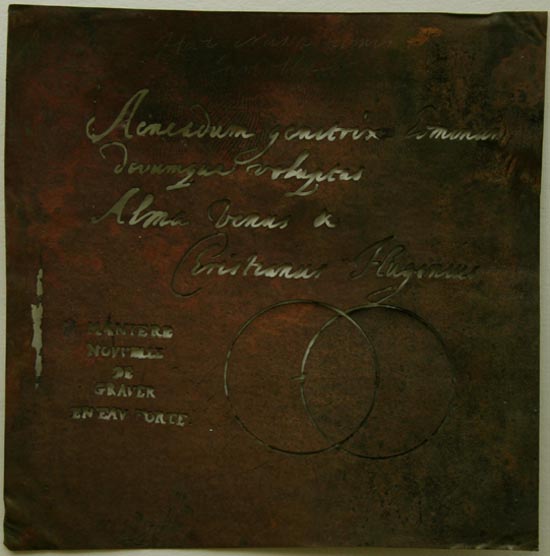 Aeneadum genitrix homonum
divumque voluptas
Alma Venus &
Cristianus Hugenius
MANIERE
NOUVELLE
DE
GRAVER
EN EAV FORTE